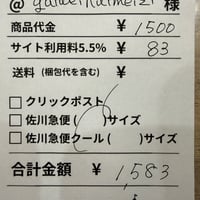 @ 様
商品代金 ¥ 1500
サイト利用料5.5% ¥ 83
送料(梱包代を含む) ¥
□クリックポスト
□佐川急便( )サイズ
□佐川急便クール( )サイズ
合計金額 ¥ 1,583